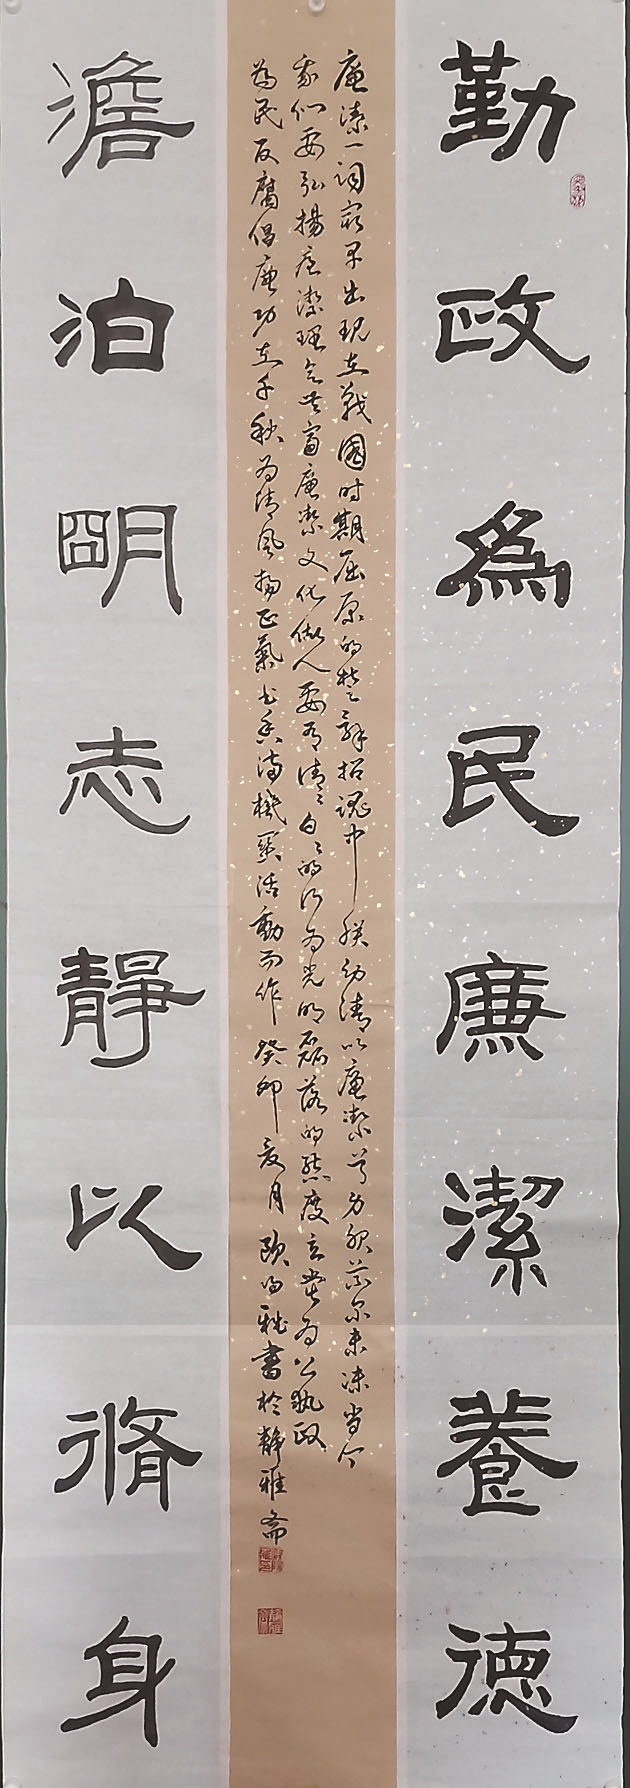 勤政爲民廉潔養德
廉潔一詞最早出现在戰國时期屈原的楚辞招魂中朕幼清以廉潔兮身服義尔未沫当今
我们要弘揚廉潔理念共富廉潔文化做人要有清清白白的行为光明磊落的態度立党为公执政
為民反腐倡廉功在千秋为清风揚正氣书香满機関活動而作癸卯夏月欧阳
書於静雅斋
澹泊明志靜以脩身